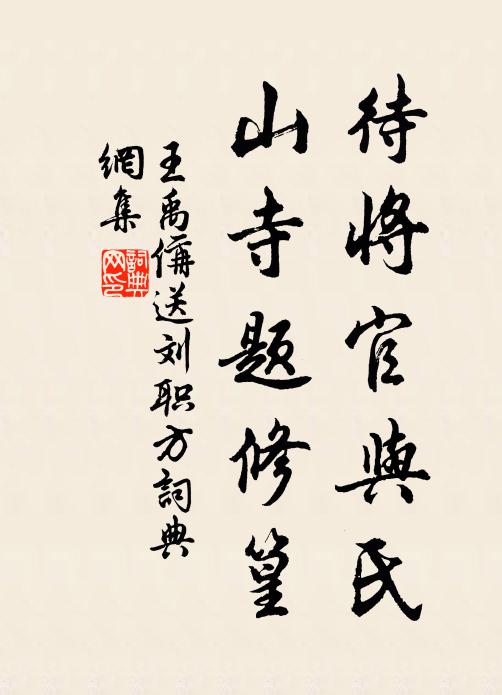 待将官與氏
山寺题修篁
王禹偁送刘职方詞典
網集
詞典
网印